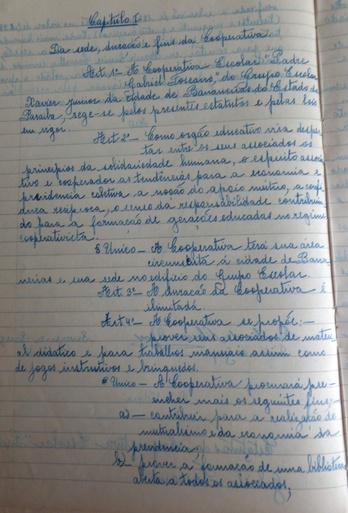 Capítulo I
Da sede, duração e fins da Cooperativa
Art 1º - A Cooperativa Escolar "Padre
Gabriel Toscano," do Grupo Escolar
Xavier Junior da cidade de Bananeiras do Estado da
Paraíba, rege-se pelos presentes estatutos e pelas leis
em vigor.
Art 2º - Como orgão educativo visa desper-
tar entre os seus associados os
principios da solidariedade humana, o espirito associa-
tivo e cooperador as tendências para a economia e
previdencia coletiva a noção do apoio mutuo, a confi-
ança reciproca, o senso da responsabilidade contribuin
do para a formação de gerações educadas no regime
cooperativista.
§ Unico - A Cooperativa terá sua área
circunscita á cidade de Bana
neiras e sua sede no edificio do Grupo Escolar.
Art. 3º - A duração da Cooperativa é
ilimitada.
Art 4º - A Cooperativa se propõe: -
prover seus associados de mater
al didatico e para trabalhos manuais assim como
de jogos instrutivos e brinquedos.
§ Unico - A Cooperativa procurará pre-
encher mais os seguintes fins:
a) - contribuir para a realização do
mutualismo, da economia da
previdencia;
b) - prover a formação de uma biblioteca
aberta a todos os associados;